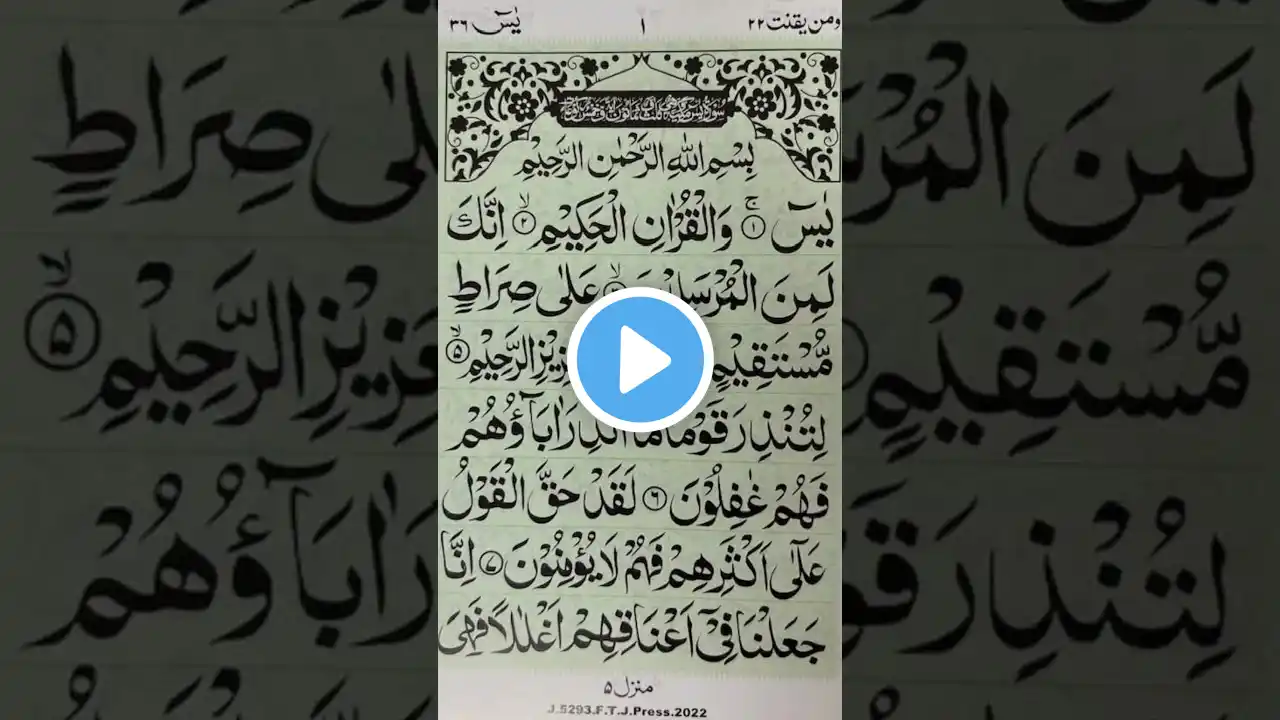 ومن يقنت ٢٢
١
يٰسٓ ٣٦
بِسْمِ اللهِ الرَّحْمٰنِ الرَّحِيْمِ
يٰسٓ ۚ﴿١﴾ وَالْقُرْاٰنِ الْحَكِيْمِ ۙ﴿٢﴾ اِنَّكَ
لَمِنَ الْمُرْسَلِيْنَ ۙ عَلٰى صِرَاطٍ
مُّسْتَقِيْمٍ الرَّحِيْمِ ۙ﴿٥﴾
لِتُنْذِرَ قَوْمًا مَّاۤ اُنْذِرَ اٰبَآؤُهُمْ
فَهُمْ غٰفِلُوْنَ ﴿٦﴾ لَقَدْ حَقَّ الْقَوْلُ
عَلٰٓى اَكْثَرِهِمْ فَهُمْ لَا يُؤْمِنُوْنَ ﴿٧﴾ اِنَّا
جَعَلْنَا فِيْٓ اَعْنَاقِهِمْ اَغْلٰلًا فَهِيَ
منزل ٥
J.5293.F.T.J.Press.2022